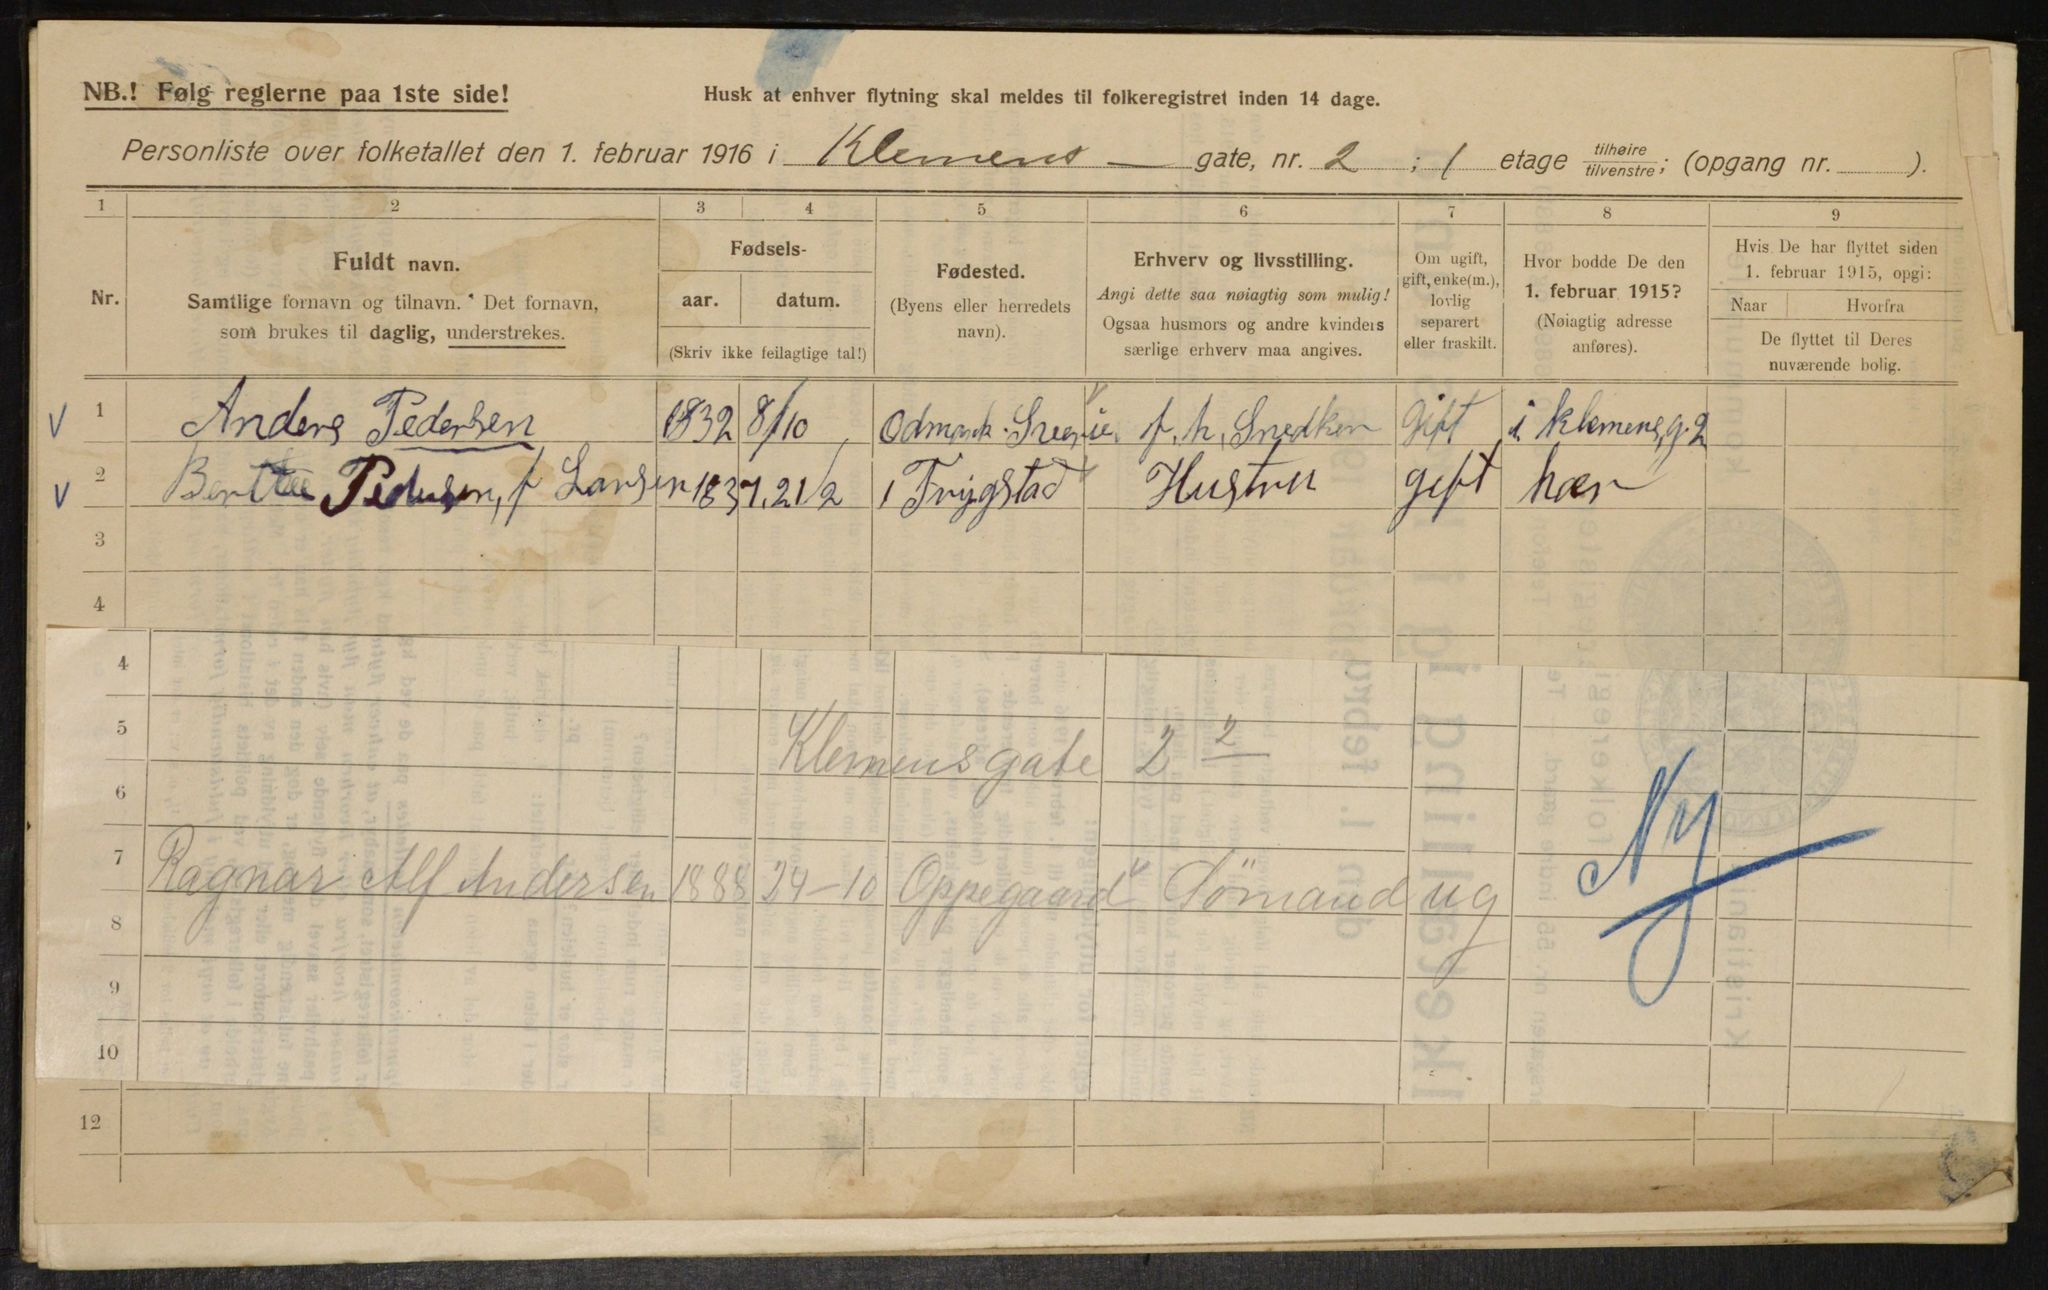 NB.! Følg reglerne paa 1ste side!
Husk at enhver flytning skal meldes til folkeregistret inden 14 dage.
Personliste over folketallet den 1. februar 1916 i Klemens gate, nr. 2 ; 1 etage tilhøire/tilvenstre; (opgang nr. ).
1 2 3 4 5 6 7 8 9
Nr.
Fuldt navn.
Samtlige fornavn og tilnavn. Det fornavn,
som brukes til daglig, understrekes.
Fødsels-
aar. datum.
(Skriv ikke feilagtige tal!)
Fødested.
(Byens eller herredets
navn).
Erhverv og livsstilling.
Angi dette saa nøiagtig som mulig!
Ogsaa husmors og andre kvinders
særlige erhverv maa angives.
Om ugift,
gift, enke(m.),
lovlig
separert
eller fraskilt.
Hvor bodde De den
1. februar 1915?
(Nøiagtig adresse
anføres).
Hvis De har flyttet siden
1. februar 1915, opgi:
Naar Hvorfra
De flyttet til Deres
nuværende bolig.
V 1 Anders Pedersen 1832 8/10 Odmark Sverrie. f. h. Snedker gift i Klemensg. 2
V 2 Berthe Pedersen, f Larsen 1837. 21/2 i Trygstad Hustru gift hær
3
4
4
5 Klemensgate 2 2
6
7 Ragnar Alf Andersen 1888 24-10 Oppegaard Sömand ug Ny
8
9
10
12